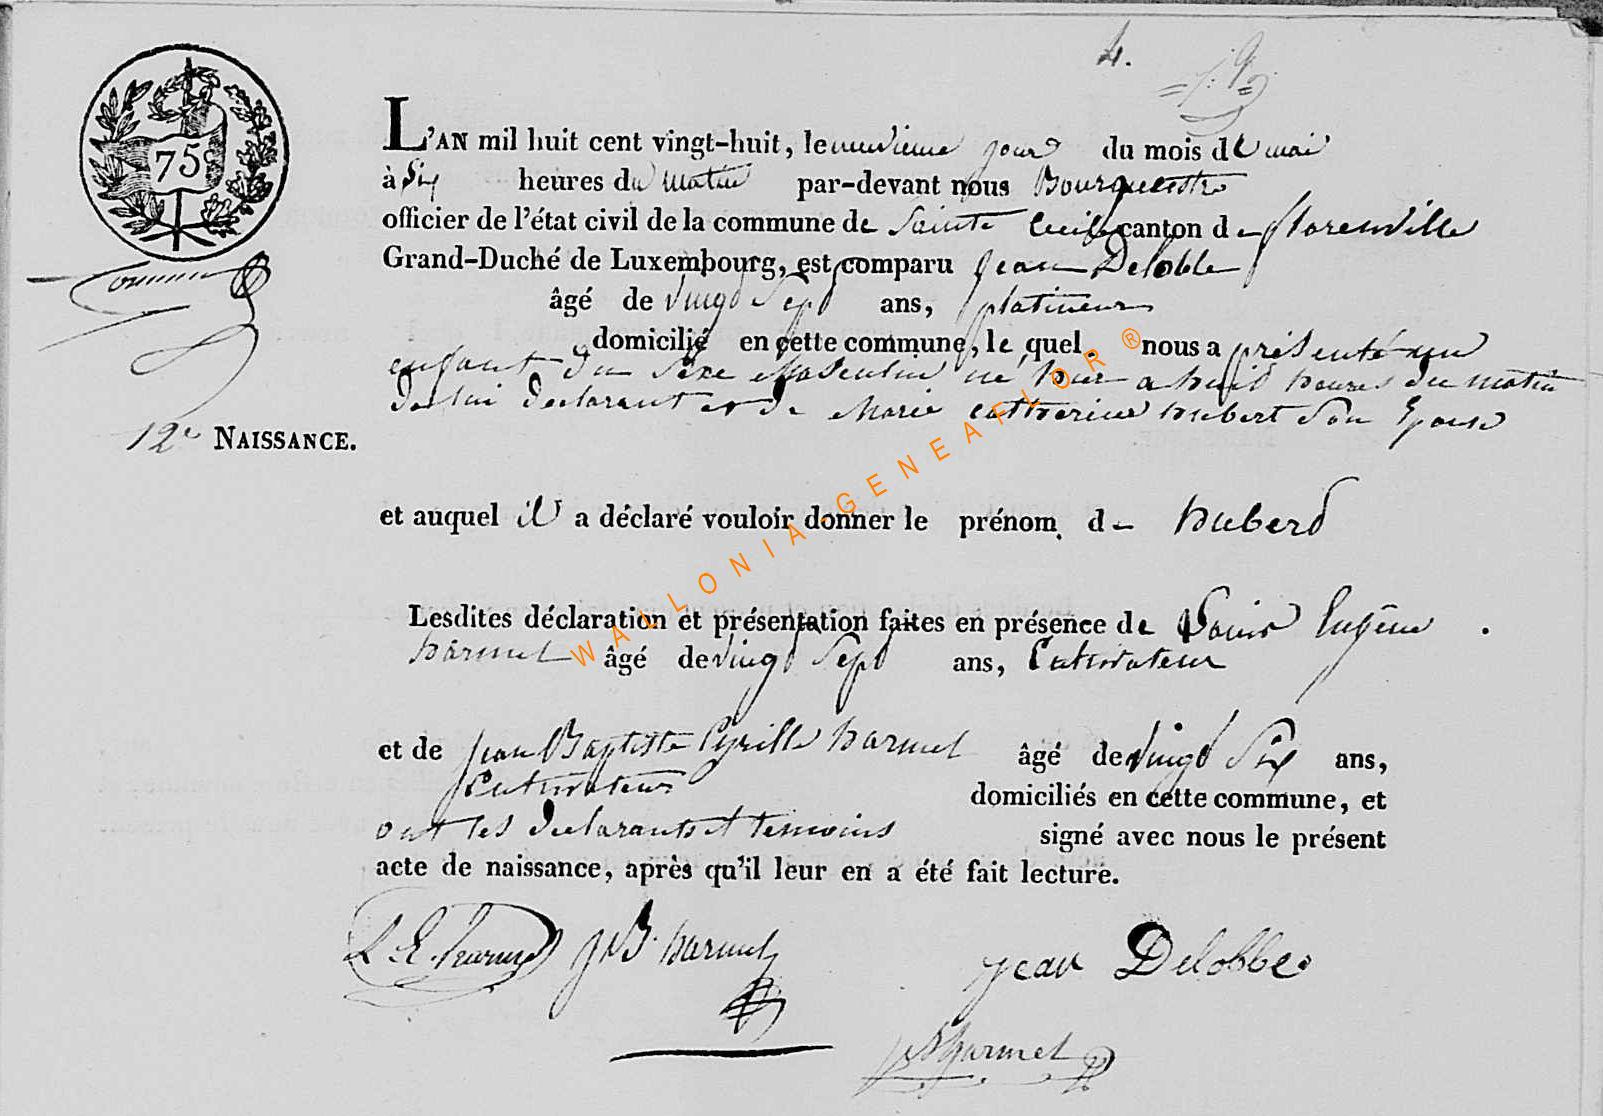 4.
75c
L'AN mil huit cent vingt-huit, le neuvieme jour du mois de mai
à Six heures du matin par-devant nous Bourguemestre
officier de l'état civil de la commune de Sainte Cecile canton de florenville
Grand-Duché de Luxembourg, est comparu Jean Delobbe
âgé de vingt Sept ans, platineur
domicilié en cette commune, le quel nous a présenté un
enfant du Sexe Masculin né hier a huit heures du matin
de lui declarant et de Marie catherine hubert Son Epouse
12e NAISSANCE.
et auquel il a déclaré vouloir donner le prénom de hubert
Lesdites déclaration et présentation faites en présence de Louis Eugêne
harmel âgé de vingt Sept ans, Cultivateur
et de Jean Baptiste Cyrille harmel âgé de vingt Six ans,
Cultivateur domiciliés en cette commune, et
ont les declarants et temoins signé avec nous le présent
acte de naissance, après qu'il leur en a été fait lecture.
L. E. harmel J B. harmel Jean Delobbe
harmel
WALLONIA-GENEAFLOR ®